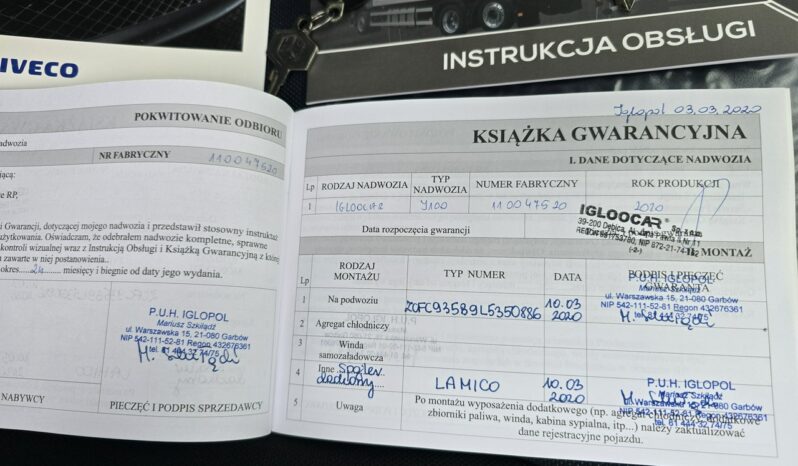 IVECO
INSTRUKCJA OBSŁUGI
POKWITOWANIE ODBIORU
nadwozia
NR FABRYCZNY 11 0047520
RP,
i Gwarancji, dotyczącej mojego nadwozia i przedstawił stosowny instruktaż
użytkowania. Oświadczam, że odebrałem nadwozie kompletne, sprawne
kontroli wizualnej wraz z Instrukcją Obsługi i Książką Gwarancyjną z której
zawarte w niej postanowienia..
okres.....24..... miesięcy i biegnie od daty jego wydania.
P.U.H. IGLOPOL
Mariusz Szkilądź
ul. Warszawska 15, 21-080 Garbów
NIP 542-111-52-81 Regon 432676361
tel. 81 444 32 74/75
NABYWCY
PIECZĘĆ I PODPIS SPRZEDAWCY
Iglopol 03.03.2020
KSIĄŻKA GWARANCYJNA
I. DANE DOTYCZĄCE NADWOZIA
Lp RODZAJ NADWOZIA TYP NADWOZIA NUMER FABRYCZNY ROK PRODUKCJI
1 IGLOOCAR J100 11 0047520 2020
Data rozpoczęcia gwarancji
IGLOOCAR Sp. z o.o.
39-200 Dębica,
II. MONTAŻ
Lp RODZAJ MONTAŻU TYP NUMER DATA PODPIS I PIECZĘĆ GWARANTA
1 Na podwoziu ZCFC93589L5350886 10.03 2020
P.U.H. IGLOPOL
Mariusz Szkilądź
ul. Warszawska 15, 21-080 Garbów
NIP 542-111-52-81 Regon 432676361
2 Agregat chłodniczy
3 Winda samozaładowcza
4 Inne Spojler dachowy LAMICO 10.03 2020
P.U.H. IGLOPOL
Mariusz Szkilądź
ul. Warszawska 15, 21-080 Garbów
NIP 542-111-52-81 Regon 432676361
tel. 81 444 32 74/75
5 Uwaga Po montażu wyposażenia dodatkowego (np. agregat chłodniczy, dodatkowe
zbiorniki paliwa, winda, kabina sypialna, itp...) należy zaktualizować
dane rejestracyjne pojazdu.